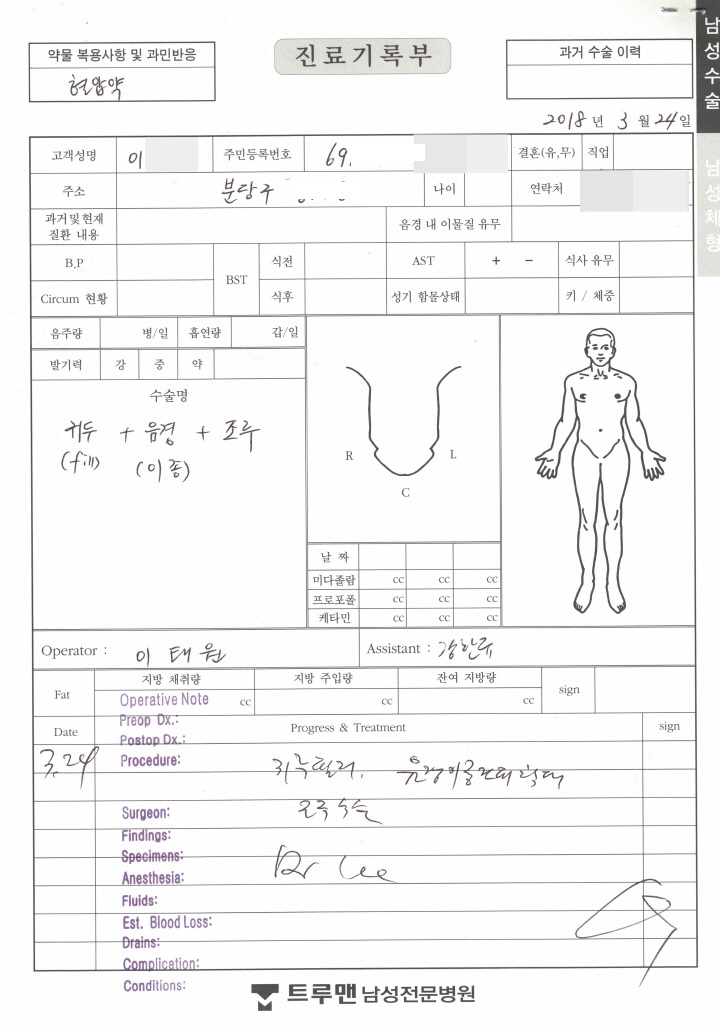 약물 복용사항 및 과민반응
혈압약
진료기록부
과거 수술 이력
남성수술
남성체형
2018 년 3 월 24 일
고객성명 이 주민등록번호 69. 결혼(유,무) 직업
주소 분당구 나이 연락처
과거 및 현재 질환 내용 음경 내 이물질 유무
B.P BST 식전 AST + - 식사 유무
Circum 현황 식후 성기 함몰상태 키 / 체중
음주량 병/일 흡연량 갑/일
발기력 강 중 약
수술명
귀두 + 음경 + 조루
(fill) (이종)
R L
C
날 짜
미다졸람 cc cc cc
프로포폴 cc cc cc
케타민 cc cc cc
Operator : 이태원 Assistant :
Fat 지방 채취량 cc 지방 주입량 cc 잔여 지방량 cc sign
Operative Note
Date Progress & Treatment sign
Preop Dx.:
Postop Dx.:
3.24 Procedure: 귀두필러.
Surgeon:
Findings:
Specimens:
Anesthesia: Dr Lee
Fluids:
Est. Blood Loss:
Drains:
Complication:
Conditions:
트루맨 남성전문병원